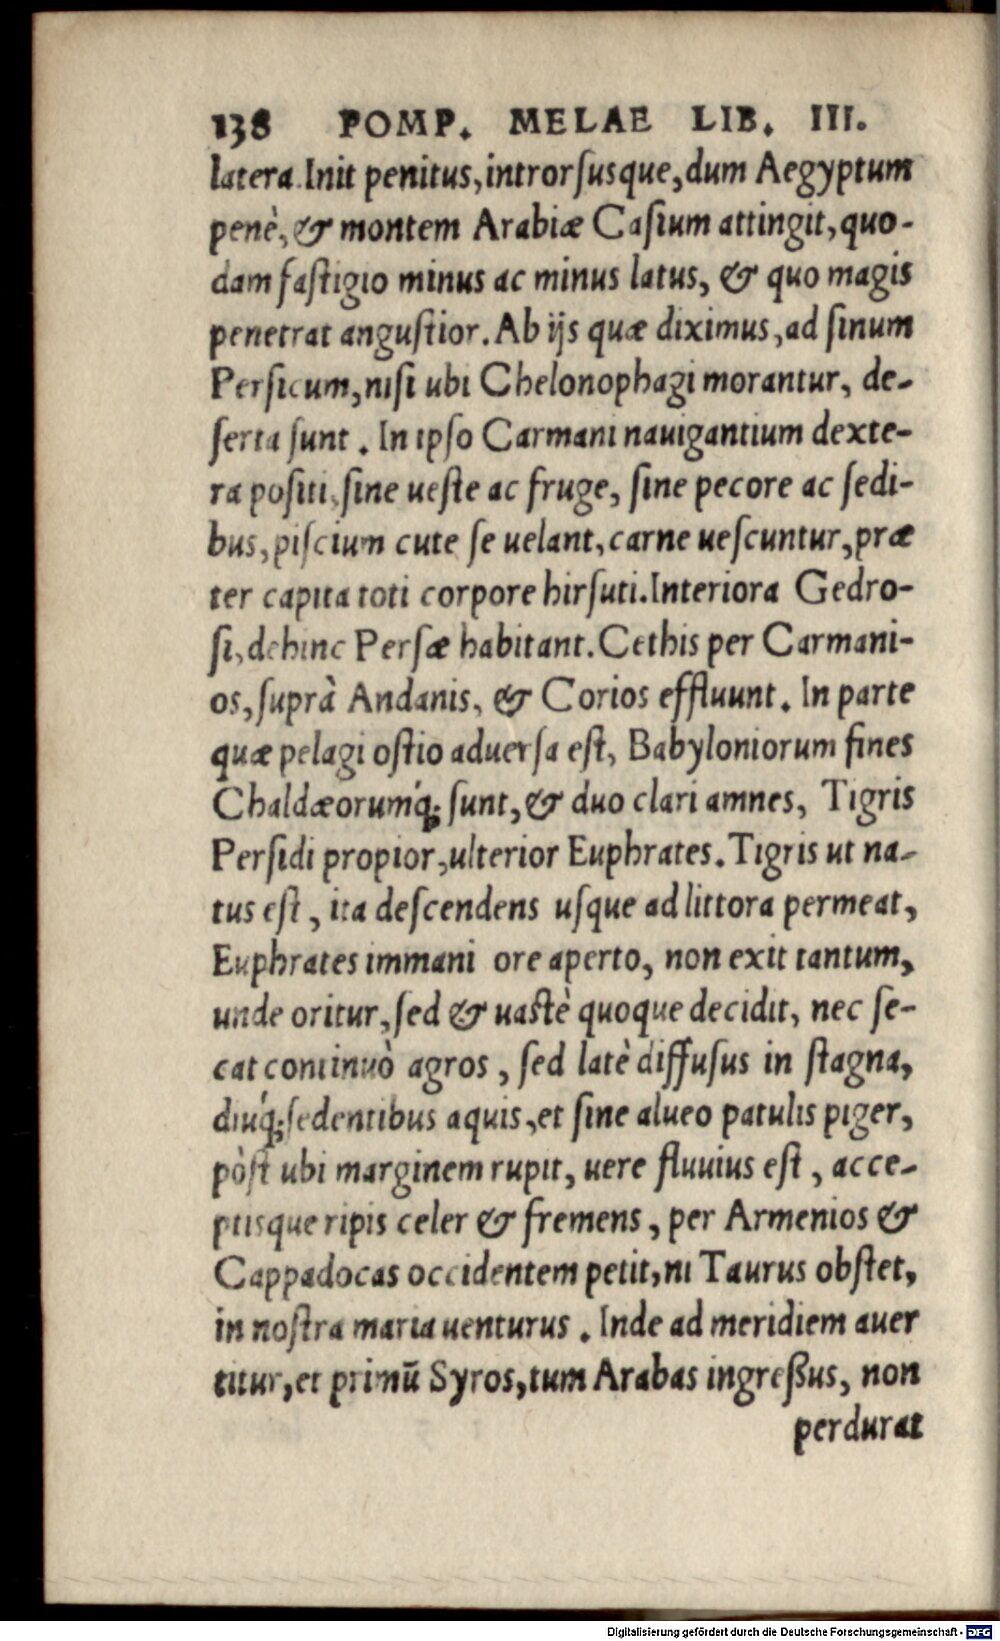 138 POMP. MELAE LIB. III.
latera. Init penitus, introrſusque, dum Aegyptum
penè, & montem Arabiæ Caſium attingit, quo-
dam faſtigio minus ac minus latus, & quo magis
penetrat anguſtior. Ab ijs quæ diximus, ad ſinum
Perſicum, niſi ubi Chelonophagi morantur, de-
ſerta ſunt. In ipſo Carmani nauigantium dexte-
ra poſiti, ſine ueſte ac fruge, ſine pecore ac ſedi-
bus, piſcium cute ſe uelant, carne ueſcuntur, præ
ter capita toti corpore hirſuti. Interiora Gedro-
ſi, dehinc Perſæ habitant. Cethis per Carmani-
os, ſuprà Andanis, & Corios effluunt. In parte
quæ pelagi oſtio aduerſa eſt, Babyloniorum fines
Chaldæorumq́; ſunt, & duo clari amnes, Tigris
Perſidi propior, ulterior Euphrates. Tigris ut na-
tus eſt, ita deſcendens uſque ad littora permeat,
Euphrates immani ore aperto, non exit tantum,
unde oritur, ſed & uaſtè quoque decidit, nec ſe-
cat continuò agros, ſed latè diffuſus in ſtagna,
diuq́; ſedentibus aquis, et ſine alueo patulis piger,
pòſt ubi marginem rupit, uere fluuius eſt, acce-
ptisque ripis celer & fremens, per Armenios &
Cappadocas occidentem petit, ni Taurus obſtet,
in noſtra maria uenturus. Inde ad meridiem auer
titur, et primū Syros, tum Arabas ingreßus, non
perdurat
Digitalisierung gefördert durch die Deutsche Forschungsgemeinschaft - DFG